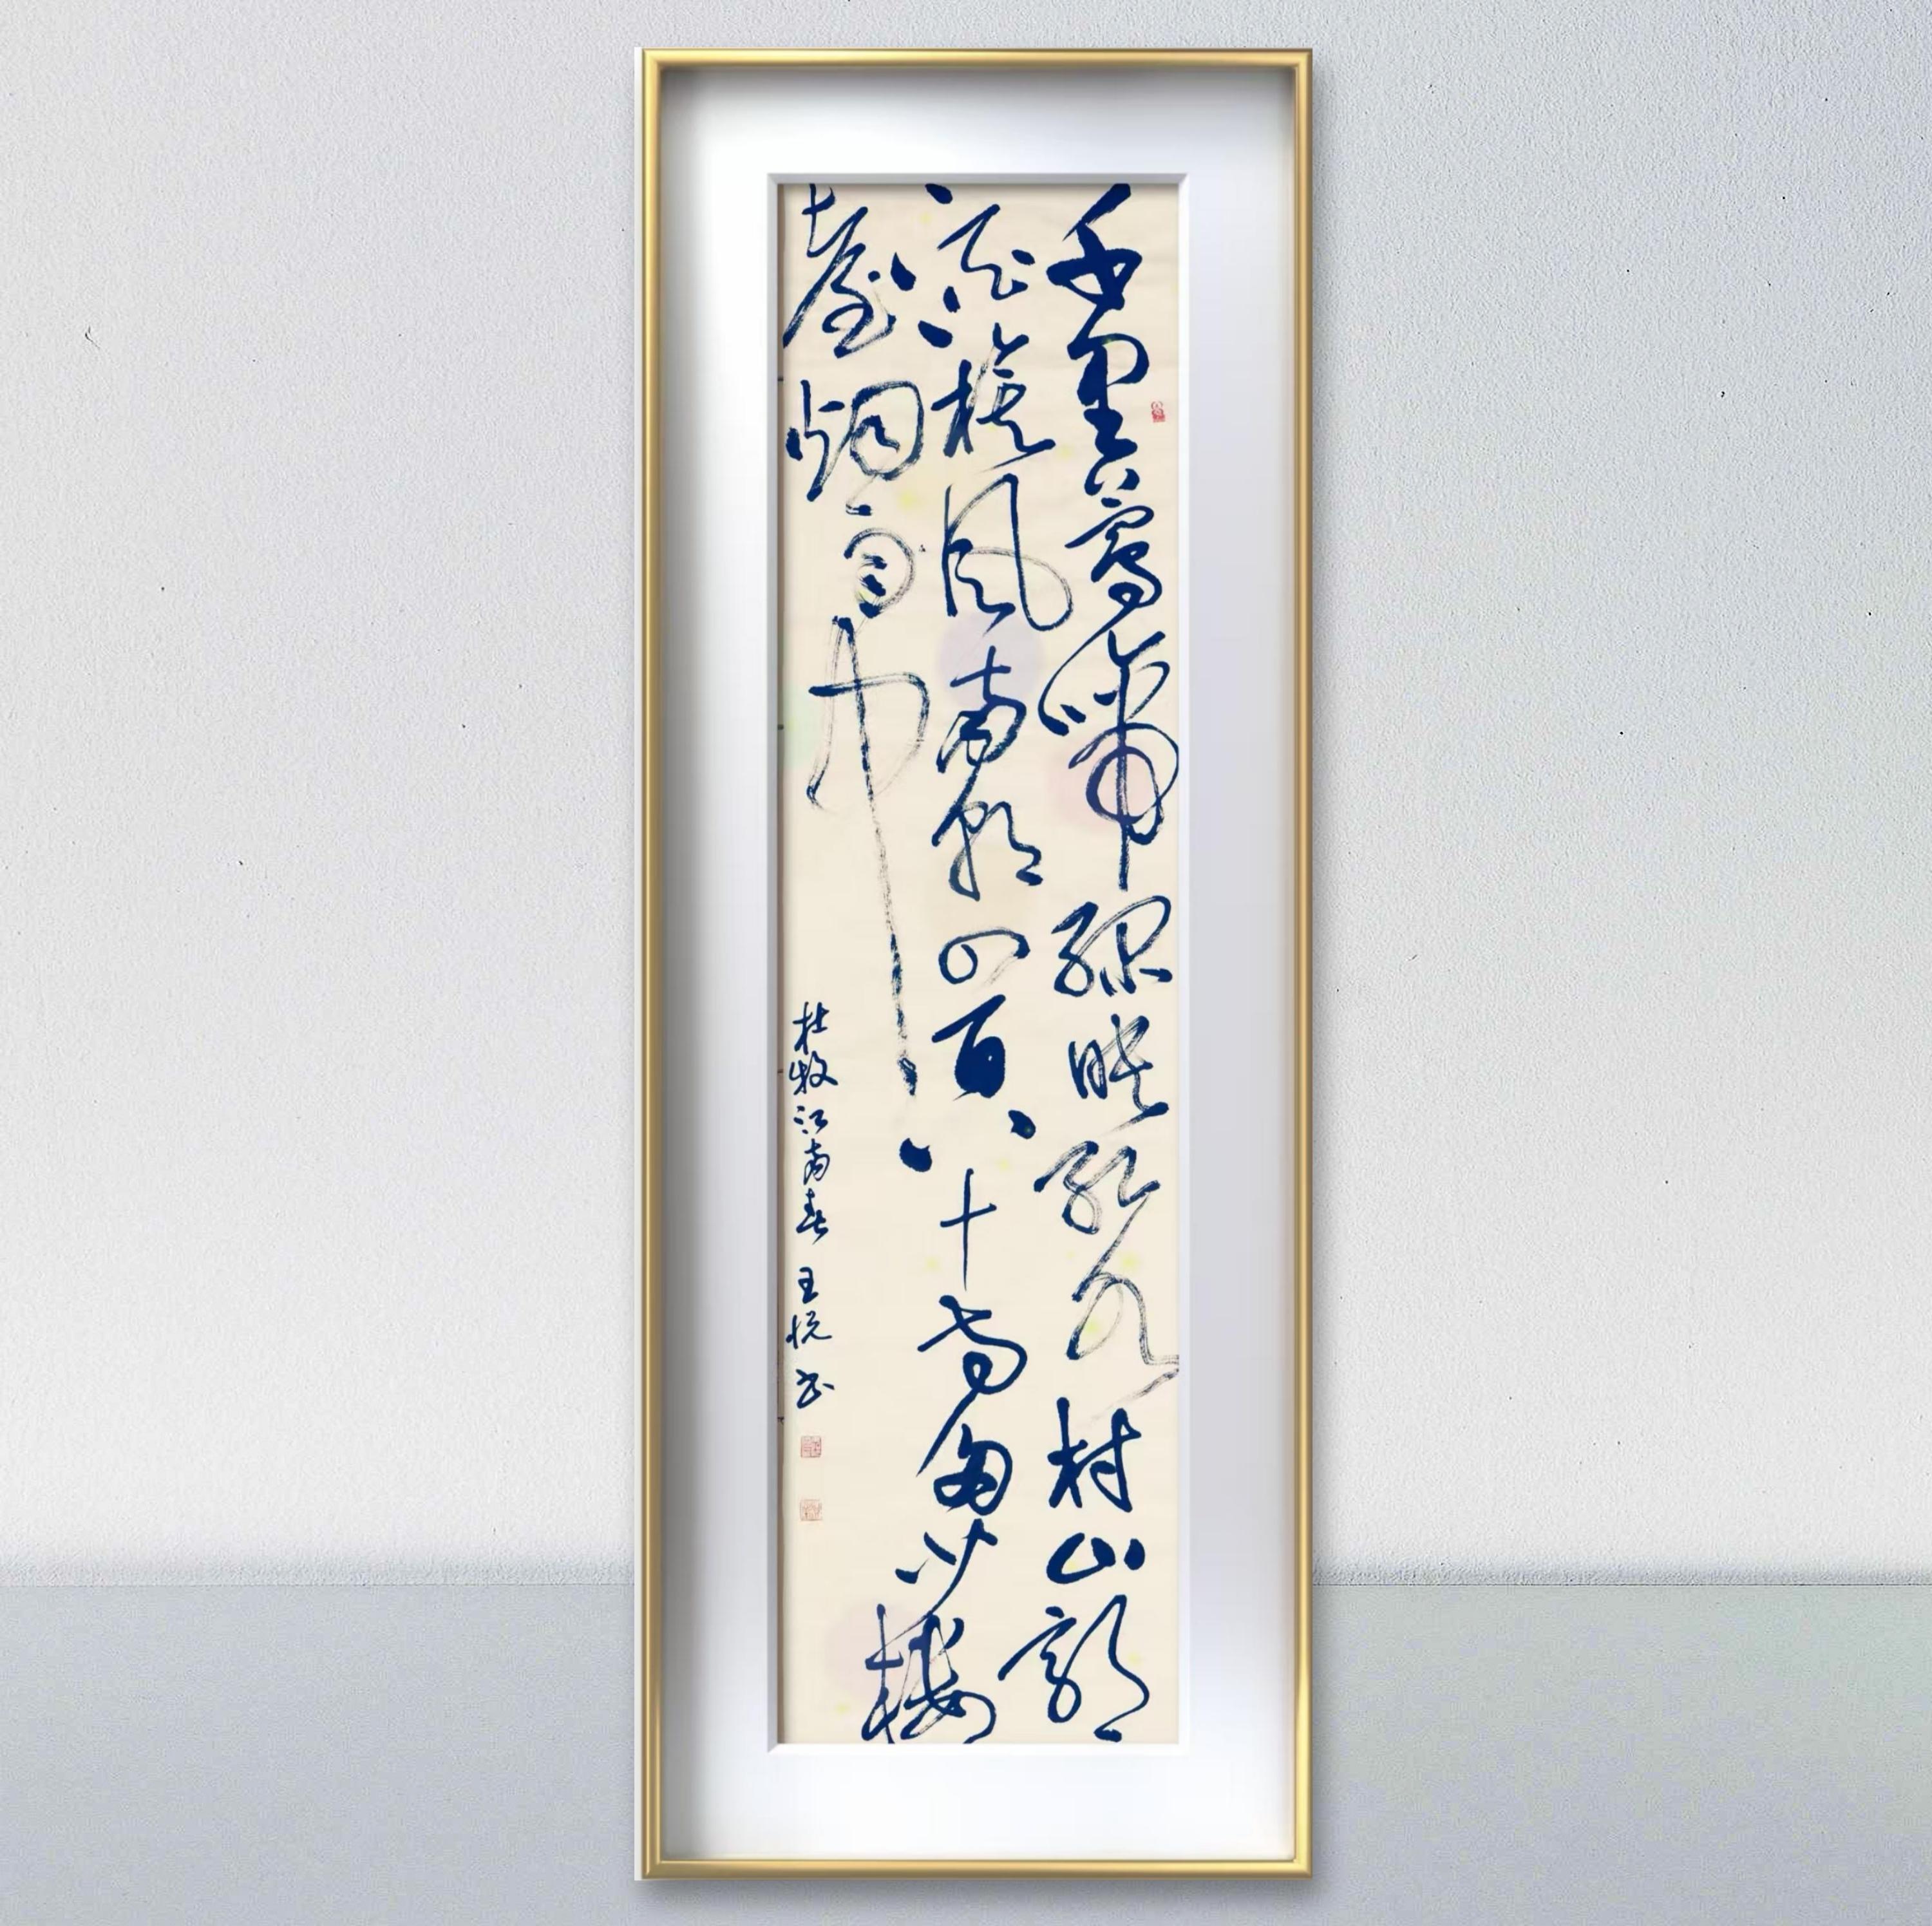 千里鶯啼綠映紅水村山郭
酒旗風南朝四百八十寺多少樓
臺烟雨中
杜牧江南春 王悦书